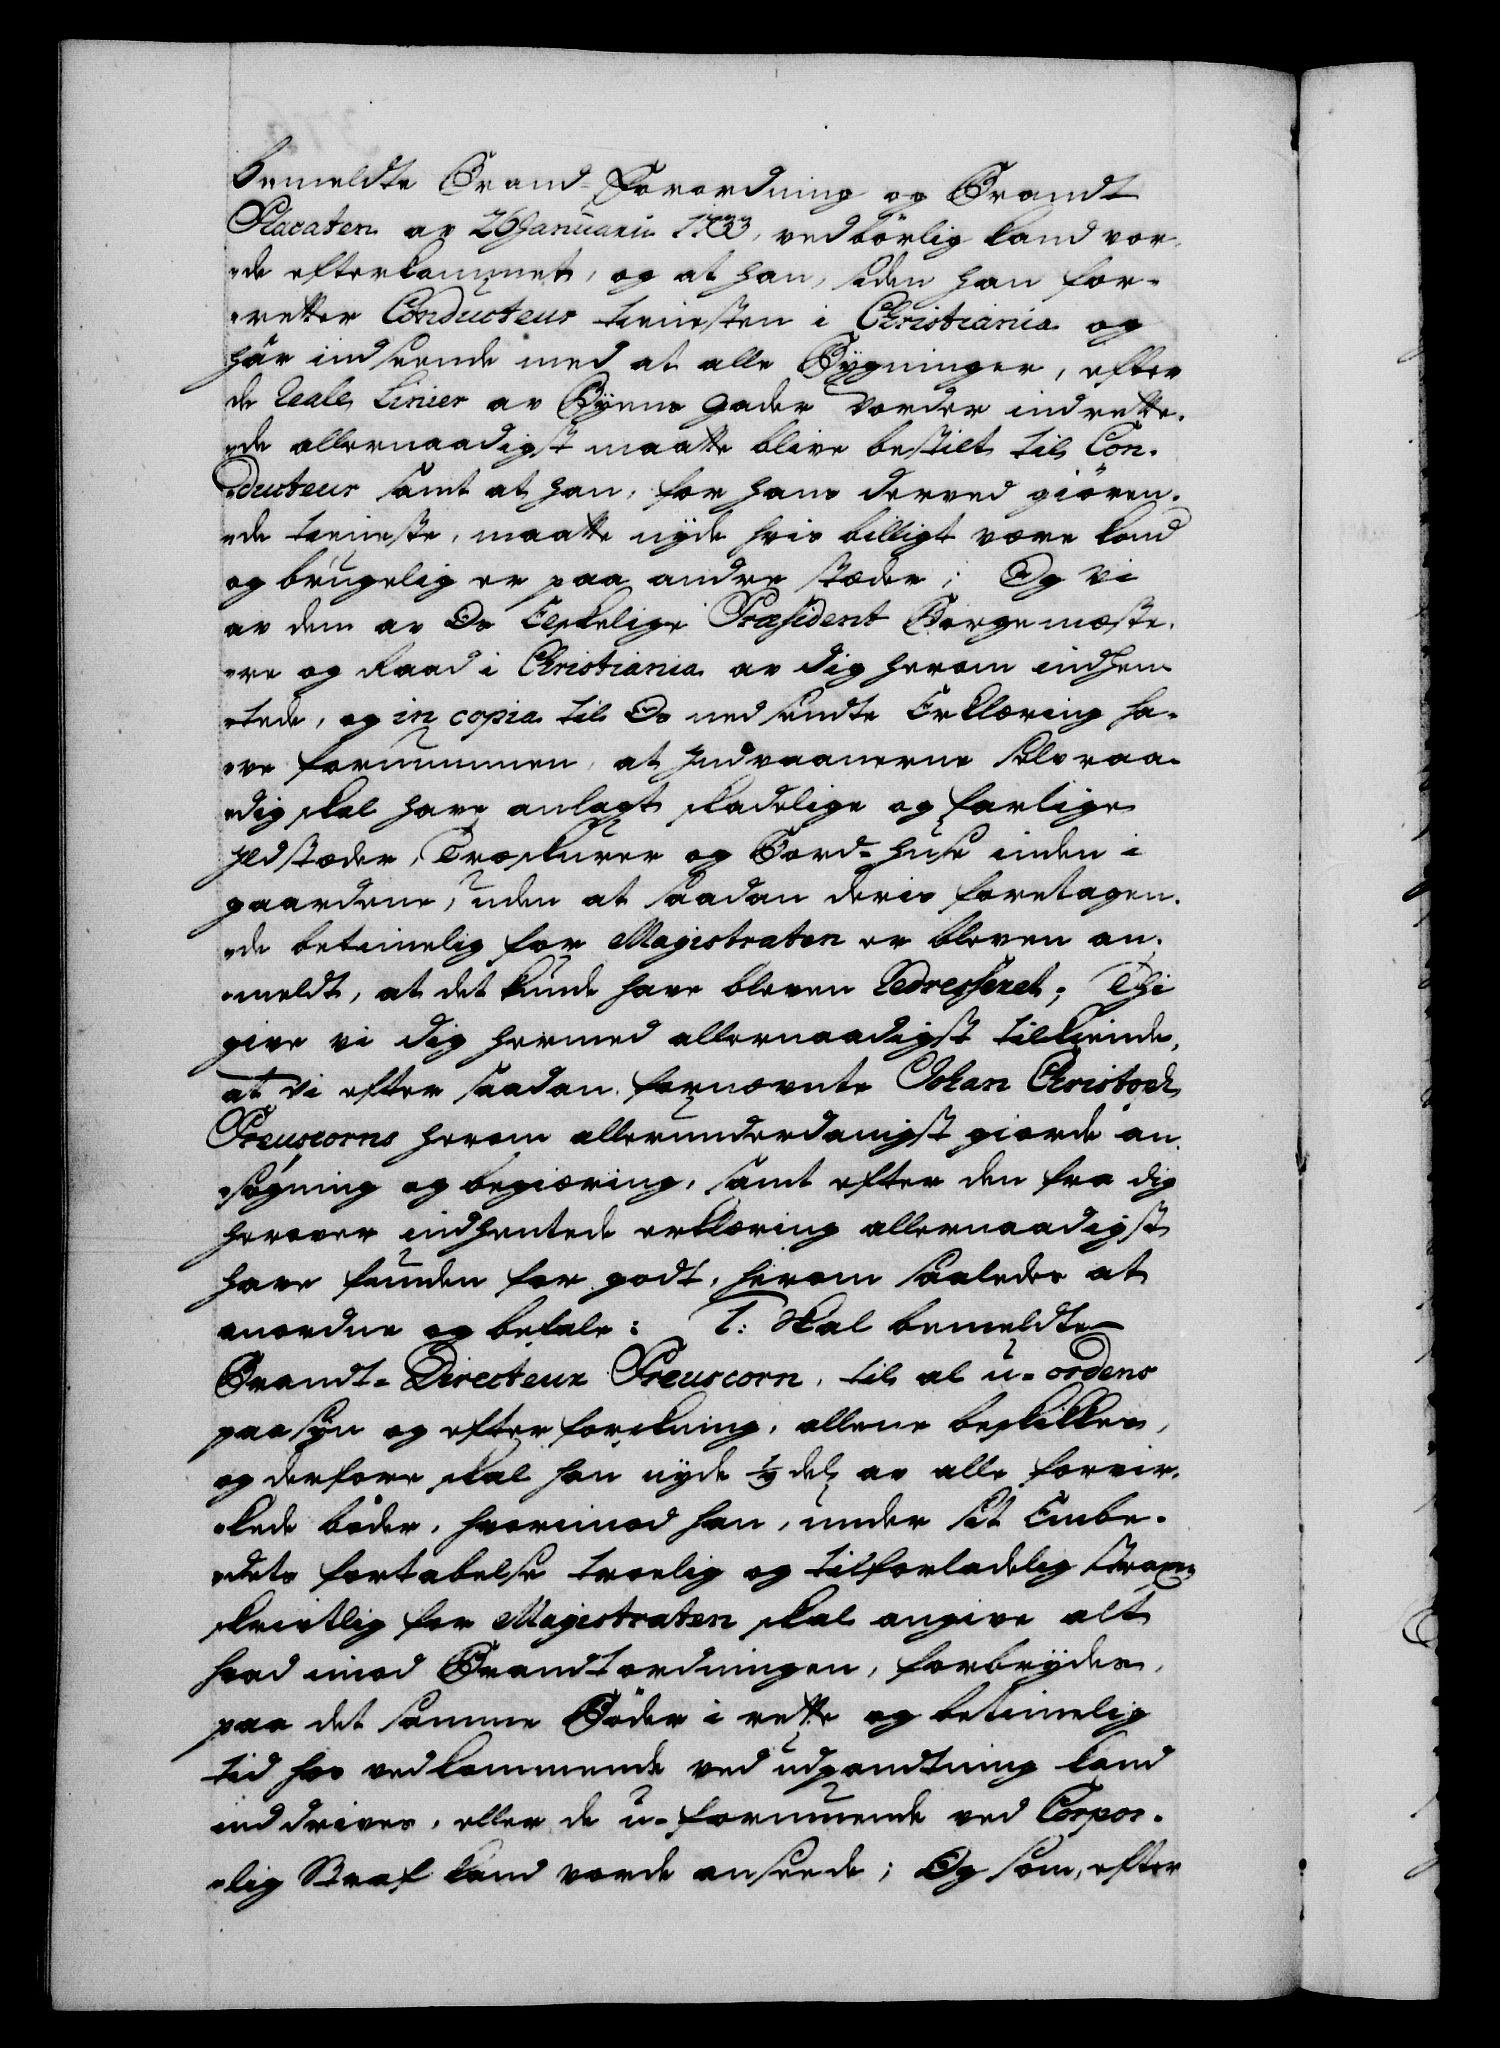 bemeldte Brand-Forordning og Brandt
Placaten av 26 Januarii 1733, ved börlig kand vor-
„de efterkommet, og at han, siden han for-
„retter Conducteur tienesten i Christiania og
hâr indseende med at alle Bygninger, efter
de Reale Linier av Byens gader vorder indrette-
„de allernaadigst maatte blive bestilt til Con-
„ducteur samt at han, for hans derved giören-
„de tieneste, maatte nyde hvis billigt være kand
og brugelig er paa andre stæder; Og Vi
av dem av Os Elskelige Præsident Borgemæste-
„re og Raad i Christiania av dig herom indhen-
„tede, og in copia til Os nedsendte Erklæring ha-
„ve fornummen, at Indvaanerne selvraa-
„dig skal have anlagt skadelige og farlige
Ildstæder, Træskurer og Bord-huse inden i
gaardene, uden at saadan deris foretagen-
„de betimelig for Magistraten er bleven an-
„meldt, at det kunde have bleven Redresseret; Thi
give vi dig hermed allernaadigst tilkiende,
at Vi efter saadan fornævnte Johan Christoph
Preuscorns herom allerunderdanigst giorde an-
„søgning og begiæring, samt efter den fra dig
herover indhentede erklæring allernaadigst
have funden for godt, herom saaledes at
anordne og befale: 1: Skal bemeldte
Brandt-Directeur Preuscorn, til al u-ordens
paasyn og efterforskning, allene beskikkes,
og derfore skal han nyde 1/3 del av alle forvir-
„kede bøder, hvorimod han, under sit Embe-
„dets fortabelse troelig og tilforladelig strax
skrivtlig for Magistraten skal angive alt
hvad imod Brandtordningen, forbrydes,
paa det samme Böder i rette og betimelig
tid hos vedkommende ved udpandtning kand
inddrives, eller de u-formuende ved Corpor-
„lig Straf kand vorde anseede; Og som, efter